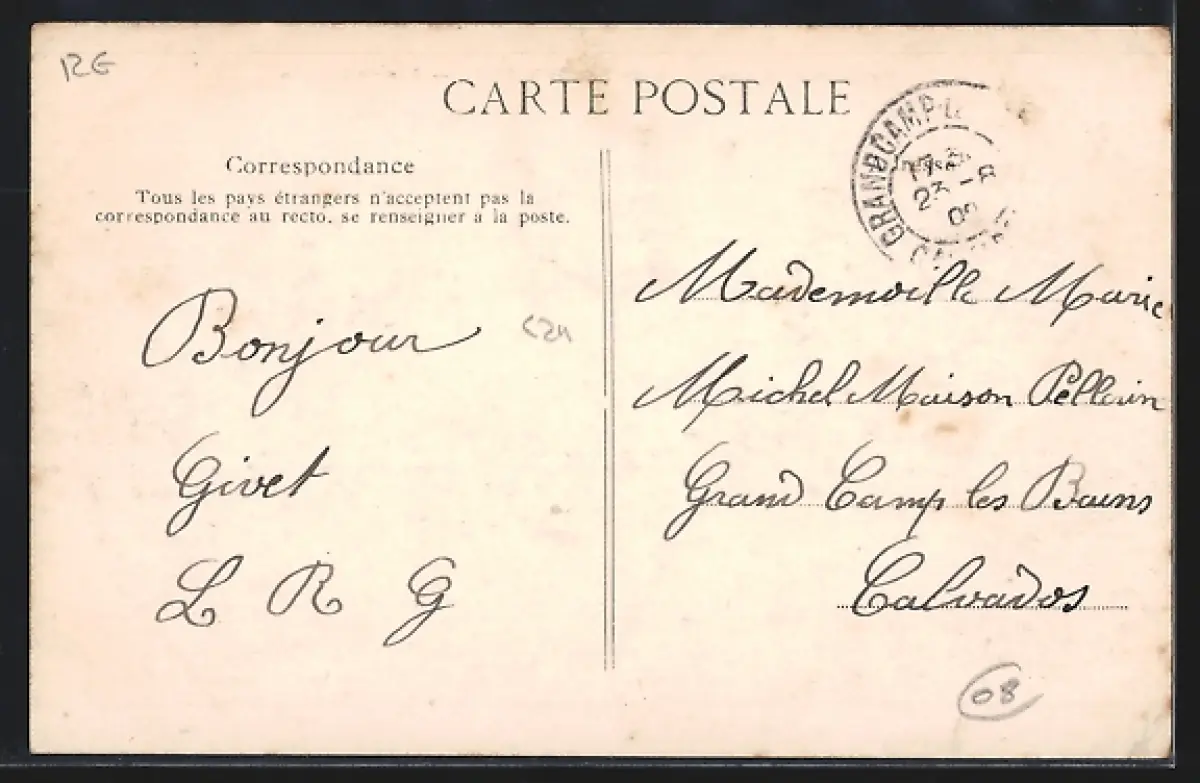 RG
CARTE POSTALE
Correspondance
Tous les pays étrangers n'acceptent pas la
correspondance au recto, se renseigner a la poste.
GRANDCAMP-L
23 -8
Bonjour
Givet
L R G
Mademoille Marie
Michel Maison Pellerin
Grand Camp les Bains
Calvados
08